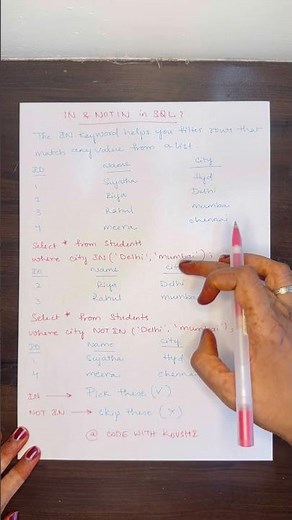 IN & NOT IN in SQL?
The IN keyword helps you filter rows that
match any value from a list
ID Name City
1 Sujatha Hyd
2 Riya Delhi
3 Rahul mumbai
4 meera chennai
Select * from Students
where city IN ('Delhi', 'mumbai');
ID Name City
2 Riya Delhi
3 Rahul mumbai
Select * from Students
where city NOT IN ('Delhi', 'mumbai');
ID Name City
1 Sujatha Hyd
4 meera chennai
IN → Pick these (x)
NOT IN → skip these (x)
@ CODE WITH